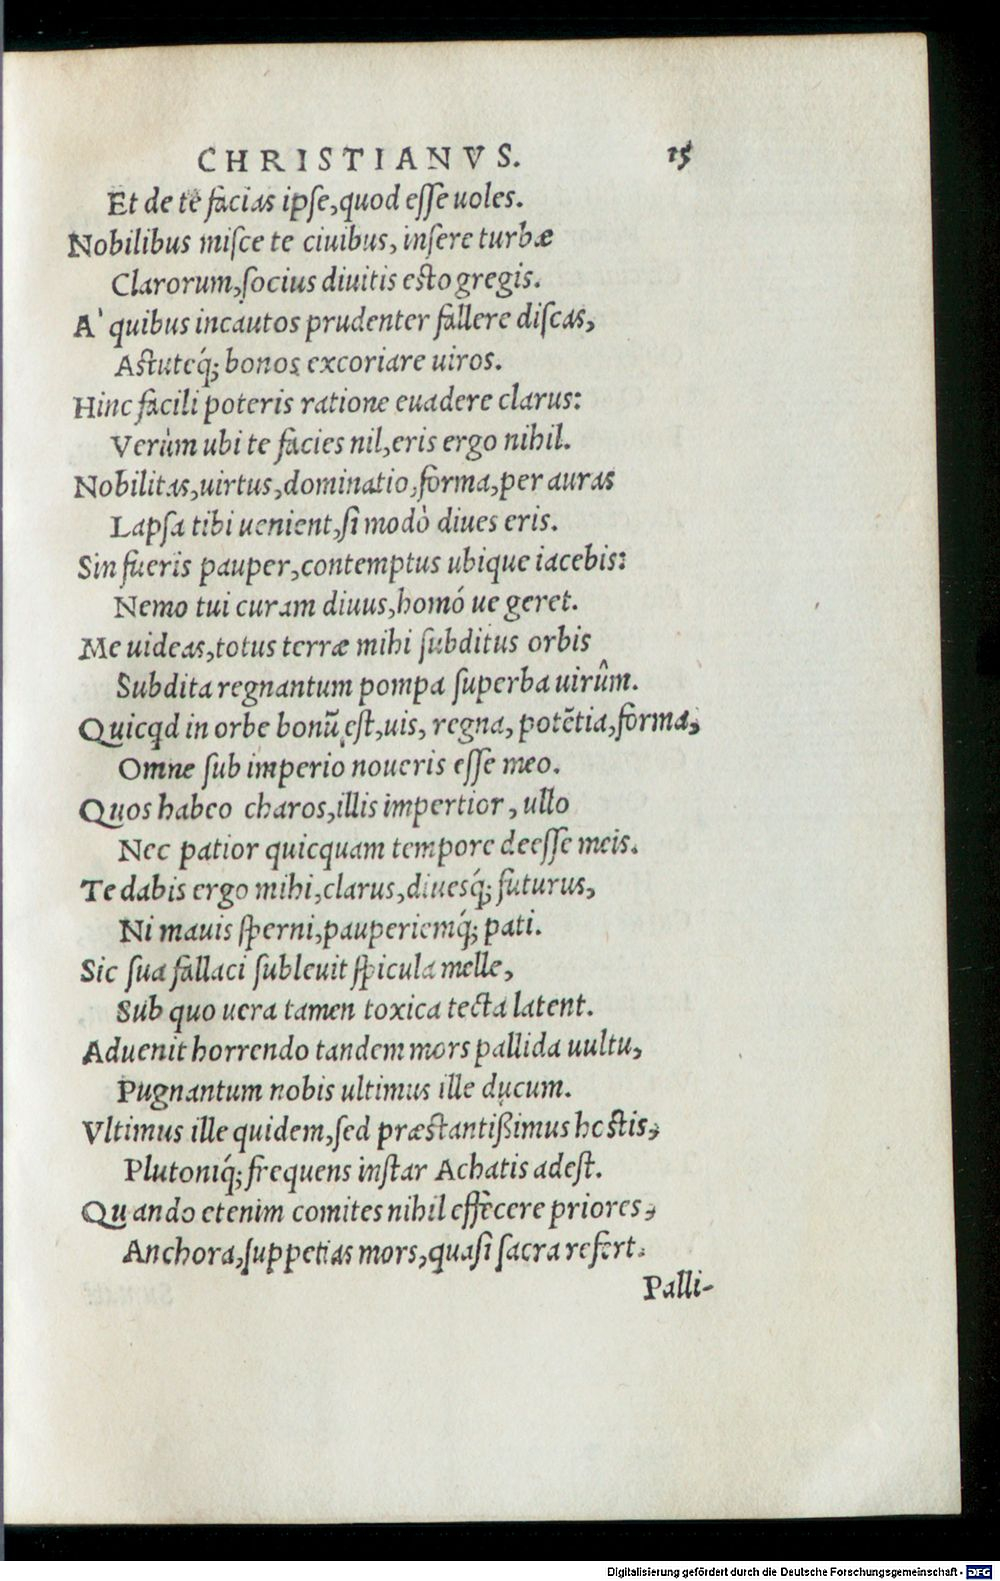 CHRISTIANVS. 15
Et de te facias ipse, quod esse uoles.
Nobilibus misce te ciuibus, insere turbæ
Clarorum, socius diuitis esto gregis.
A' quibus incautos prudenter fallere discas,
Astuteq́; bonos excoriare uiros.
Hinc facili poteris ratione euadere clarus:
Verùm ubi te facies nil, eris ergo nihil.
Nobilitas, uirtus, dominatio, forma, per auras
Lapsa tibi uenient, si modò diues eris.
Sin fueris pauper, contemptus ubique iacebis:
Nemo tui curam diuus, homó ue geret.
Me uideas, totus terræ mihi subditus orbis
Subdita regnantum pompa superba uirûm.
Quicqd in orbe bonū est, uis, regna, potētia, forma,
Omne sub imperio noueris esse meo.
Quos habeo charos, illis impertior, ullo
Nec patior quicquam tempore deesse meis.
Te dabis ergo mihi, clarus, diuesq́; futurus,
Ni mauis sperni, pauperiemq́; pati.
Sic sua fallaci subleuit spicula melle,
Sub quo uera tamen toxica tecta latent.
Aduenit horrendo tandem mors pallida uultu,
Pugnantum nobis ultimus ille ducum.
Vltimus ille quidem, sed præstantißimus hostis,
Plutoniq́; frequens instar Achatis adest.
Quando etenim comites nihil effecere priores,
Anchora, suppetias mors, quasi sacra refert.
Palli-
Digitalisierung gefördert durch die Deutsche Forschungsgemeinschaft - DFG